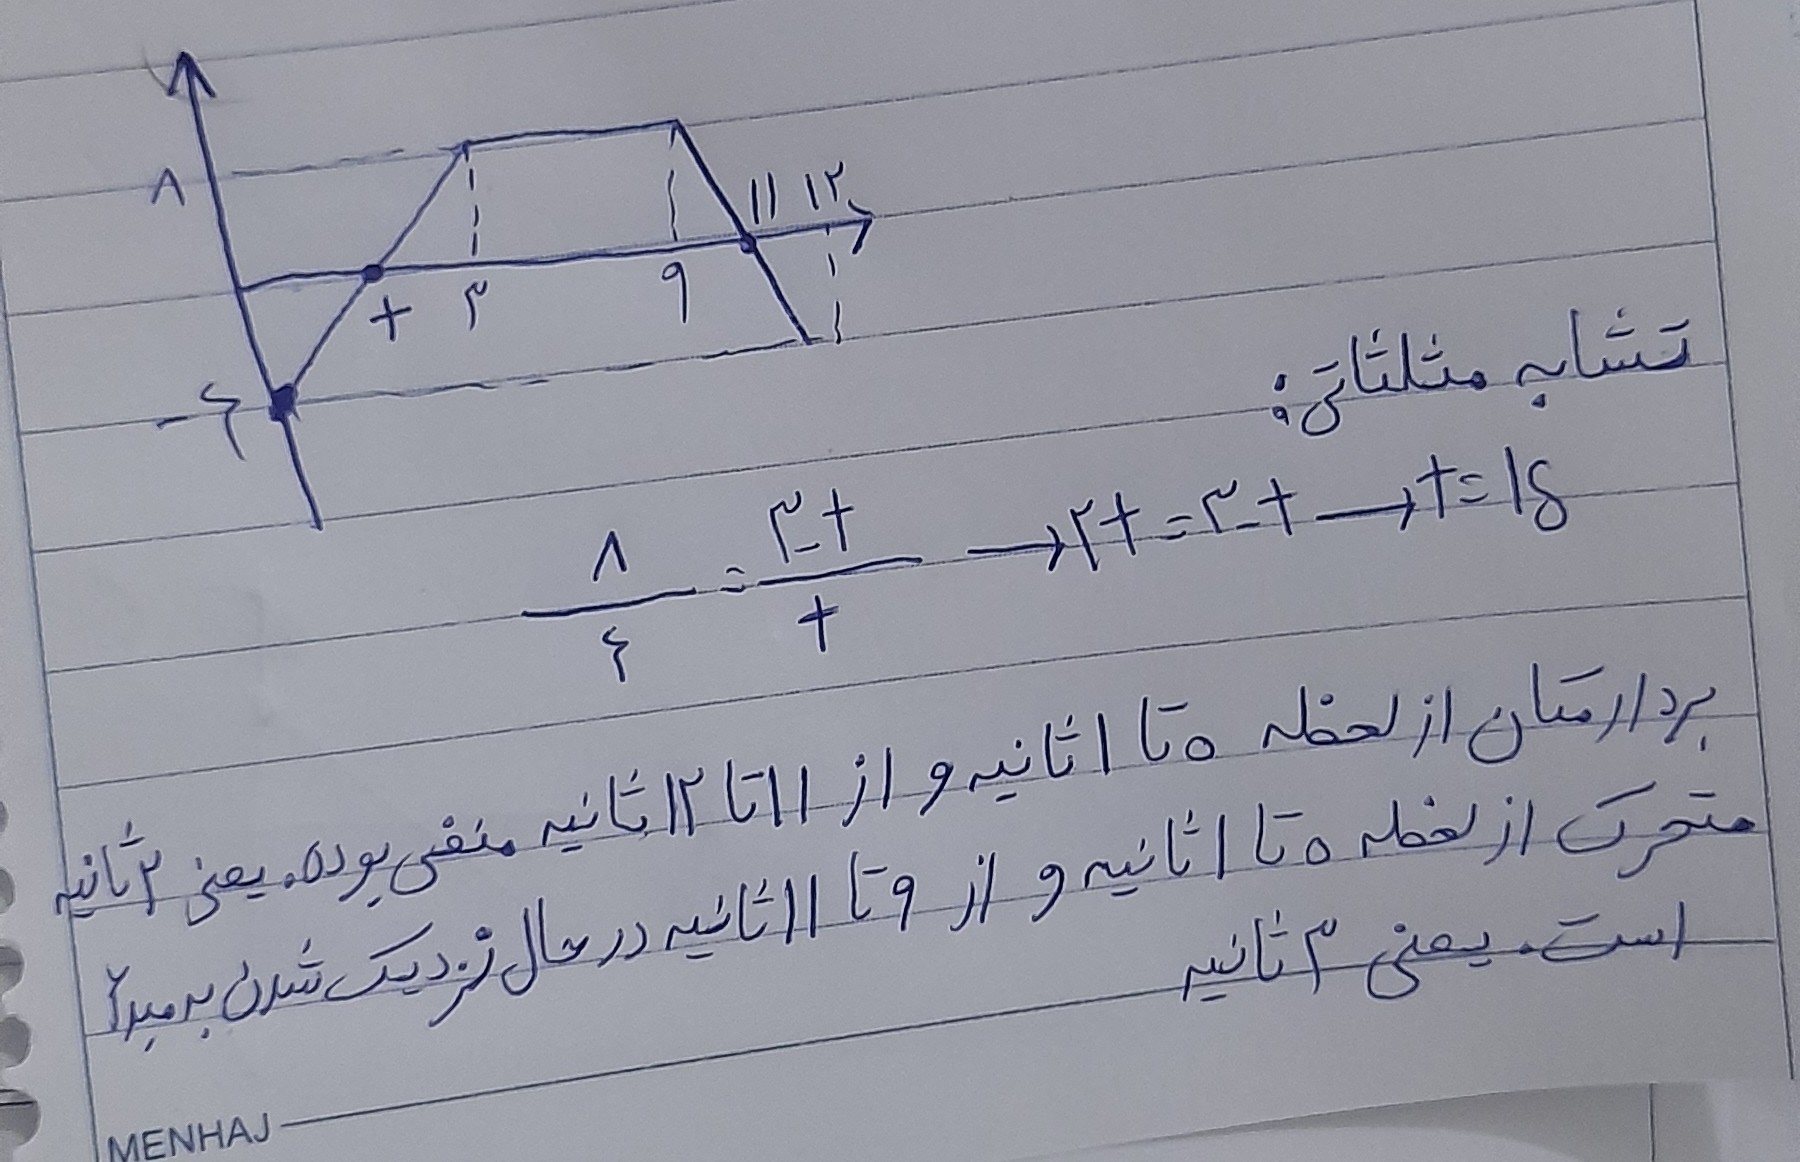 ۸
۱۱ ۱۲
t ۳ ۹
-۴
تشابه مثلثاتی:
۸/۴ = ۳-t/t → ۲t = ۳-t → t = ۱s
بردار مکان از لحظه ۰ تا ۱ ثانیه و از ۱۱ تا ۱۲ ثانیه منفی بوده. یعنی ۲ ثانیه
متحرک از لحظه ۰ تا ۱ ثانیه و از ۹ تا ۱۱ ثانیه در حال نزدیک شدن به مبدأ
است. یعنی ۳ ثانیه
MENHAJ